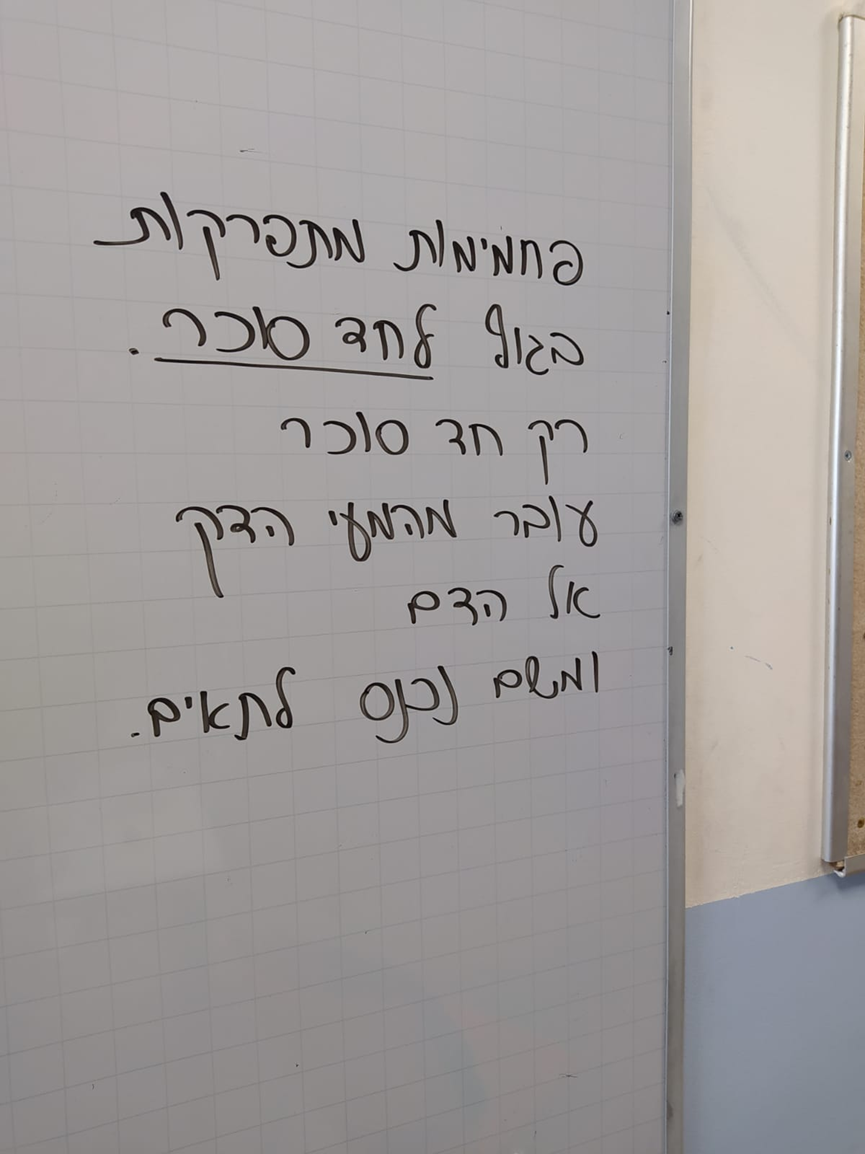 פחמימות מתפרקות
בגוף לחד סוכר.
רק חד סוכר
עובר מהמעי הדק
אל הדם
ומשם נכנס לתאים.